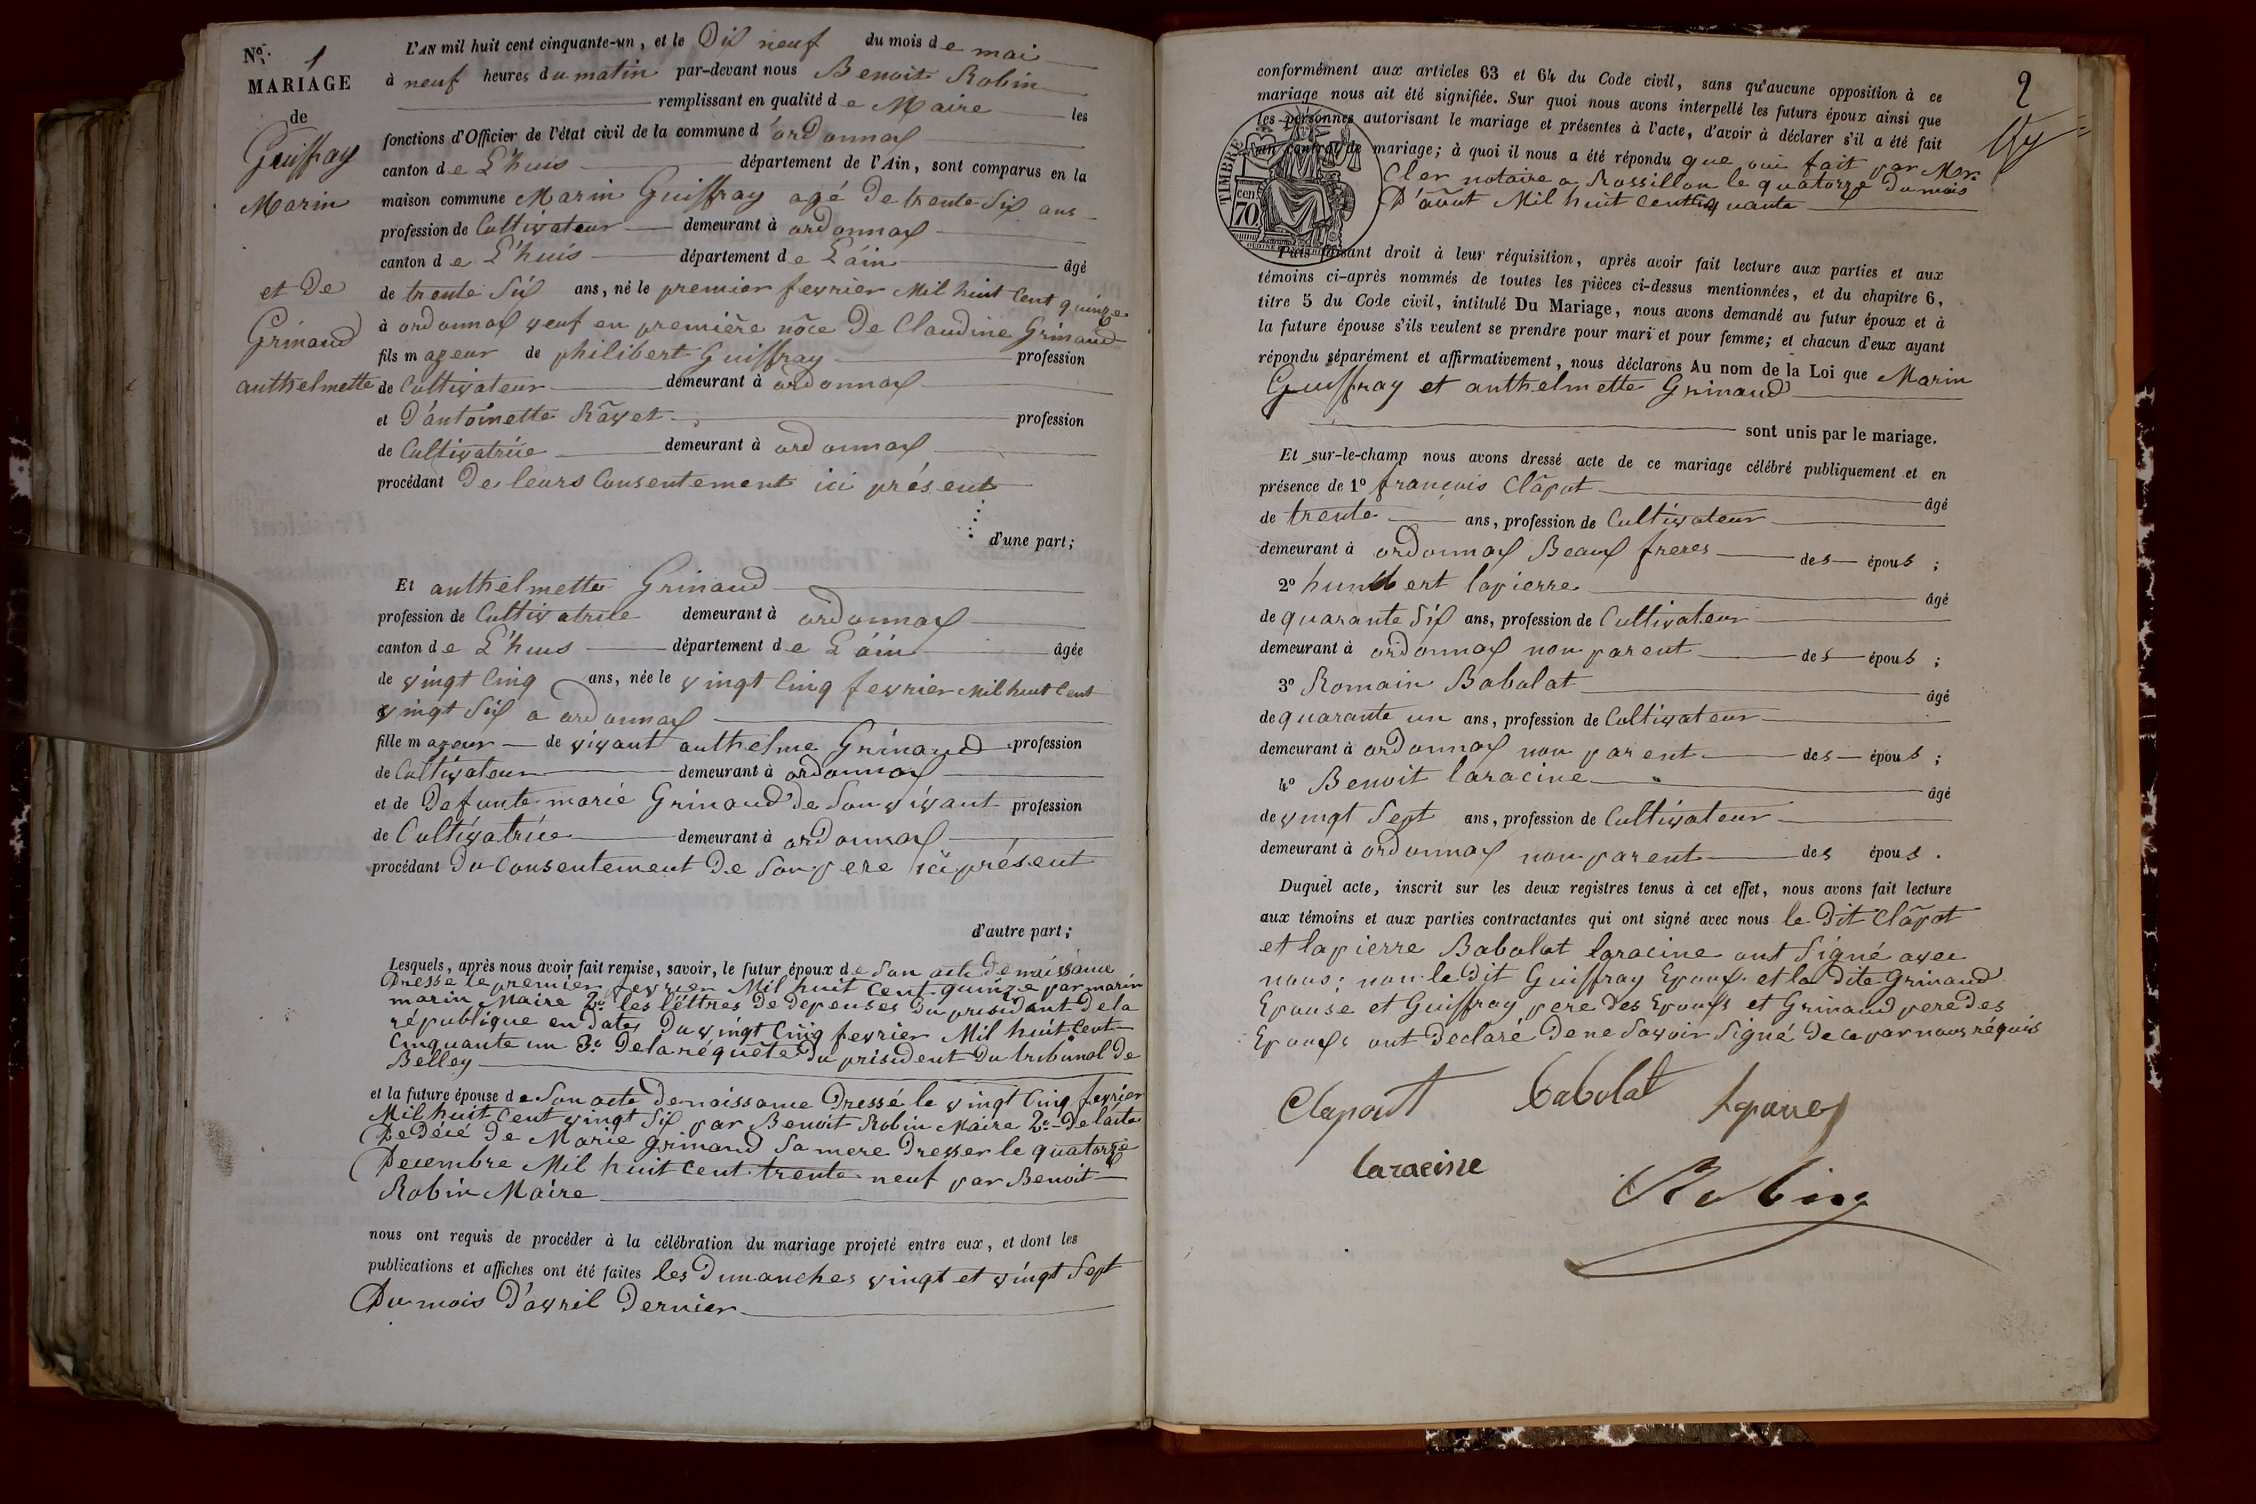 N.º 1
MARIAGE
de
Guiffray
Marin
et De
Grinand
anthelmette
L'AN mil huit cent cinquante-un, et le Dix neuf du mois de mai
à neuf heures du matin par-devant nous Benoit Robin
remplissant en qualité de Maire les
fonctions d'Officier de l'état civil de la commune d'ordonnax
canton de L'huis département de l'Ain, sont comparus en la
maison commune Marin Guiffray agé de trente Six ans
profession de Cultivateur demeurant à ordonnax
canton de L'huis département de L'áin âgé
de trente Six ans, né le premier fevrier Mil huit Cent quinze
à ordonnax veuf en première nôce De Claudine Grinand
fils mageur de philibert Guiffray profession
de Cultivateur demeurant à ordonnax
et D'antoinette Râyet profession
de Cultivatriie demeurant à ordonnax
procédant De leurs Consentement ici présent
d'une part;
Et anthelmette Grinand
profession de Cultivatriie demeurant à ordonnax
canton de L'huis département de L'áin âgée
de vingt Cinq ans, née le vingt Cinq fevrier Mil huit Cent
vingt Six a ordonnax
fille mageur de vivant anthelme Grinand profession
de Cultivateur demeurant à ordonnax
et de Defunte marie Grinand de Son vivant profession
de Cultivatriie demeurant à ordonnax
procédant Du Consentement De Son pere ici présent
d'autre part;
Lesquels, après nous avoir fait remise, savoir, le futur époux de Son acte De naissance
Dressé le premier fevrier Mil huit Cent quinze par marin
marin Maire 2º les lettres De depenses Du président De la
république en Date Du vingt Cinq fevrier Mil huit Cent
Cinquante un 3º De la réquête Du président Du tribunal De
Belley
et la future épouse de Son acte De naissance Dressé le vingt Cinq fevrier
Mil huit Cent vingt Six par Benoit Robin Maire 2º De l'acte
De décé De Marie Grinand Sa mere Dresser le quatorze
Decembre Mil huit Cent trente neuf par Benoit
Robin Maire
nous ont requis de procéder à la célébration du mariage projeté entre eux, et dont les
publications et affiches ont été faites les Dimanches vingt et vingt Sept
Du mois D'avril Dernier
2
conformément aux articles 63 et 64 du Code civil, sans qu'aucune opposition à ce
mariage nous ait été signifiée. Sur quoi nous avons interpellé les futurs époux ainsi que
les personnes autorisant le mariage et présentes à l'acte, d'avoir à déclarer s'il a été fait
un contrat de mariage; à quoi il nous a été répondu que oui fait par Mr
Cler notaire a Rossillon le quatorze Du mois
D'août Mil huit Centiquante
TIMBRE
cen
70
Puis faisant droit à leur réquisition, après avoir fait lecture aux parties et aux
témoins ci-après nommés de toutes les pièces ci-dessus mentionnées, et du chapitre 6,
titre 5 du Code civil, intitulé Du Mariage, nous avons demandé au futur époux et à
la future épouse s'ils veulent se prendre pour mari et pour femme; et chacun d'eux ayant
répondu séparément et affirmativement, nous déclarons Au nom de la Loi que Marin
Guiffray et anthelmette Grinand
sont unis par le mariage.
Et sur-le-champ nous avons dressé acte de ce mariage célébré publiquement et en
présence de 1º françois Clâpot âgé
de trente ans, profession de Cultivateur
demeurant à ordonnax Beaux freres des épous;
2º humbert lapierre âgé
de quarante Six ans, profession de Cultivateur
demeurant à ordonnax non parent des épous;
3º Romain Babolat âgé
de quarante un ans, profession de Cultivateur
demeurant à ordonnax non parent des épous;
4º Benoit laracine âgé
de vingt Sept ans, profession de Cultivateur
demeurant à ordonnax non parent des épous.
Duquel acte, inscrit sur les deux registres tenus à cet effet, nous avons fait lecture
aux témoins et aux parties contractantes qui ont signé avec nous le Dit Clâpot
et lapierre Babolat laracine ont Signé avec
nous; non le Dit Guiffray Epoux et la Dite Grinand
Epouse et Guiffray pere Des Epouxs et Grinand pere Des
Epouxs ont Declaré De ne Savoir Signé De ce par nous réquis
Clapout babolat
laracine Robin